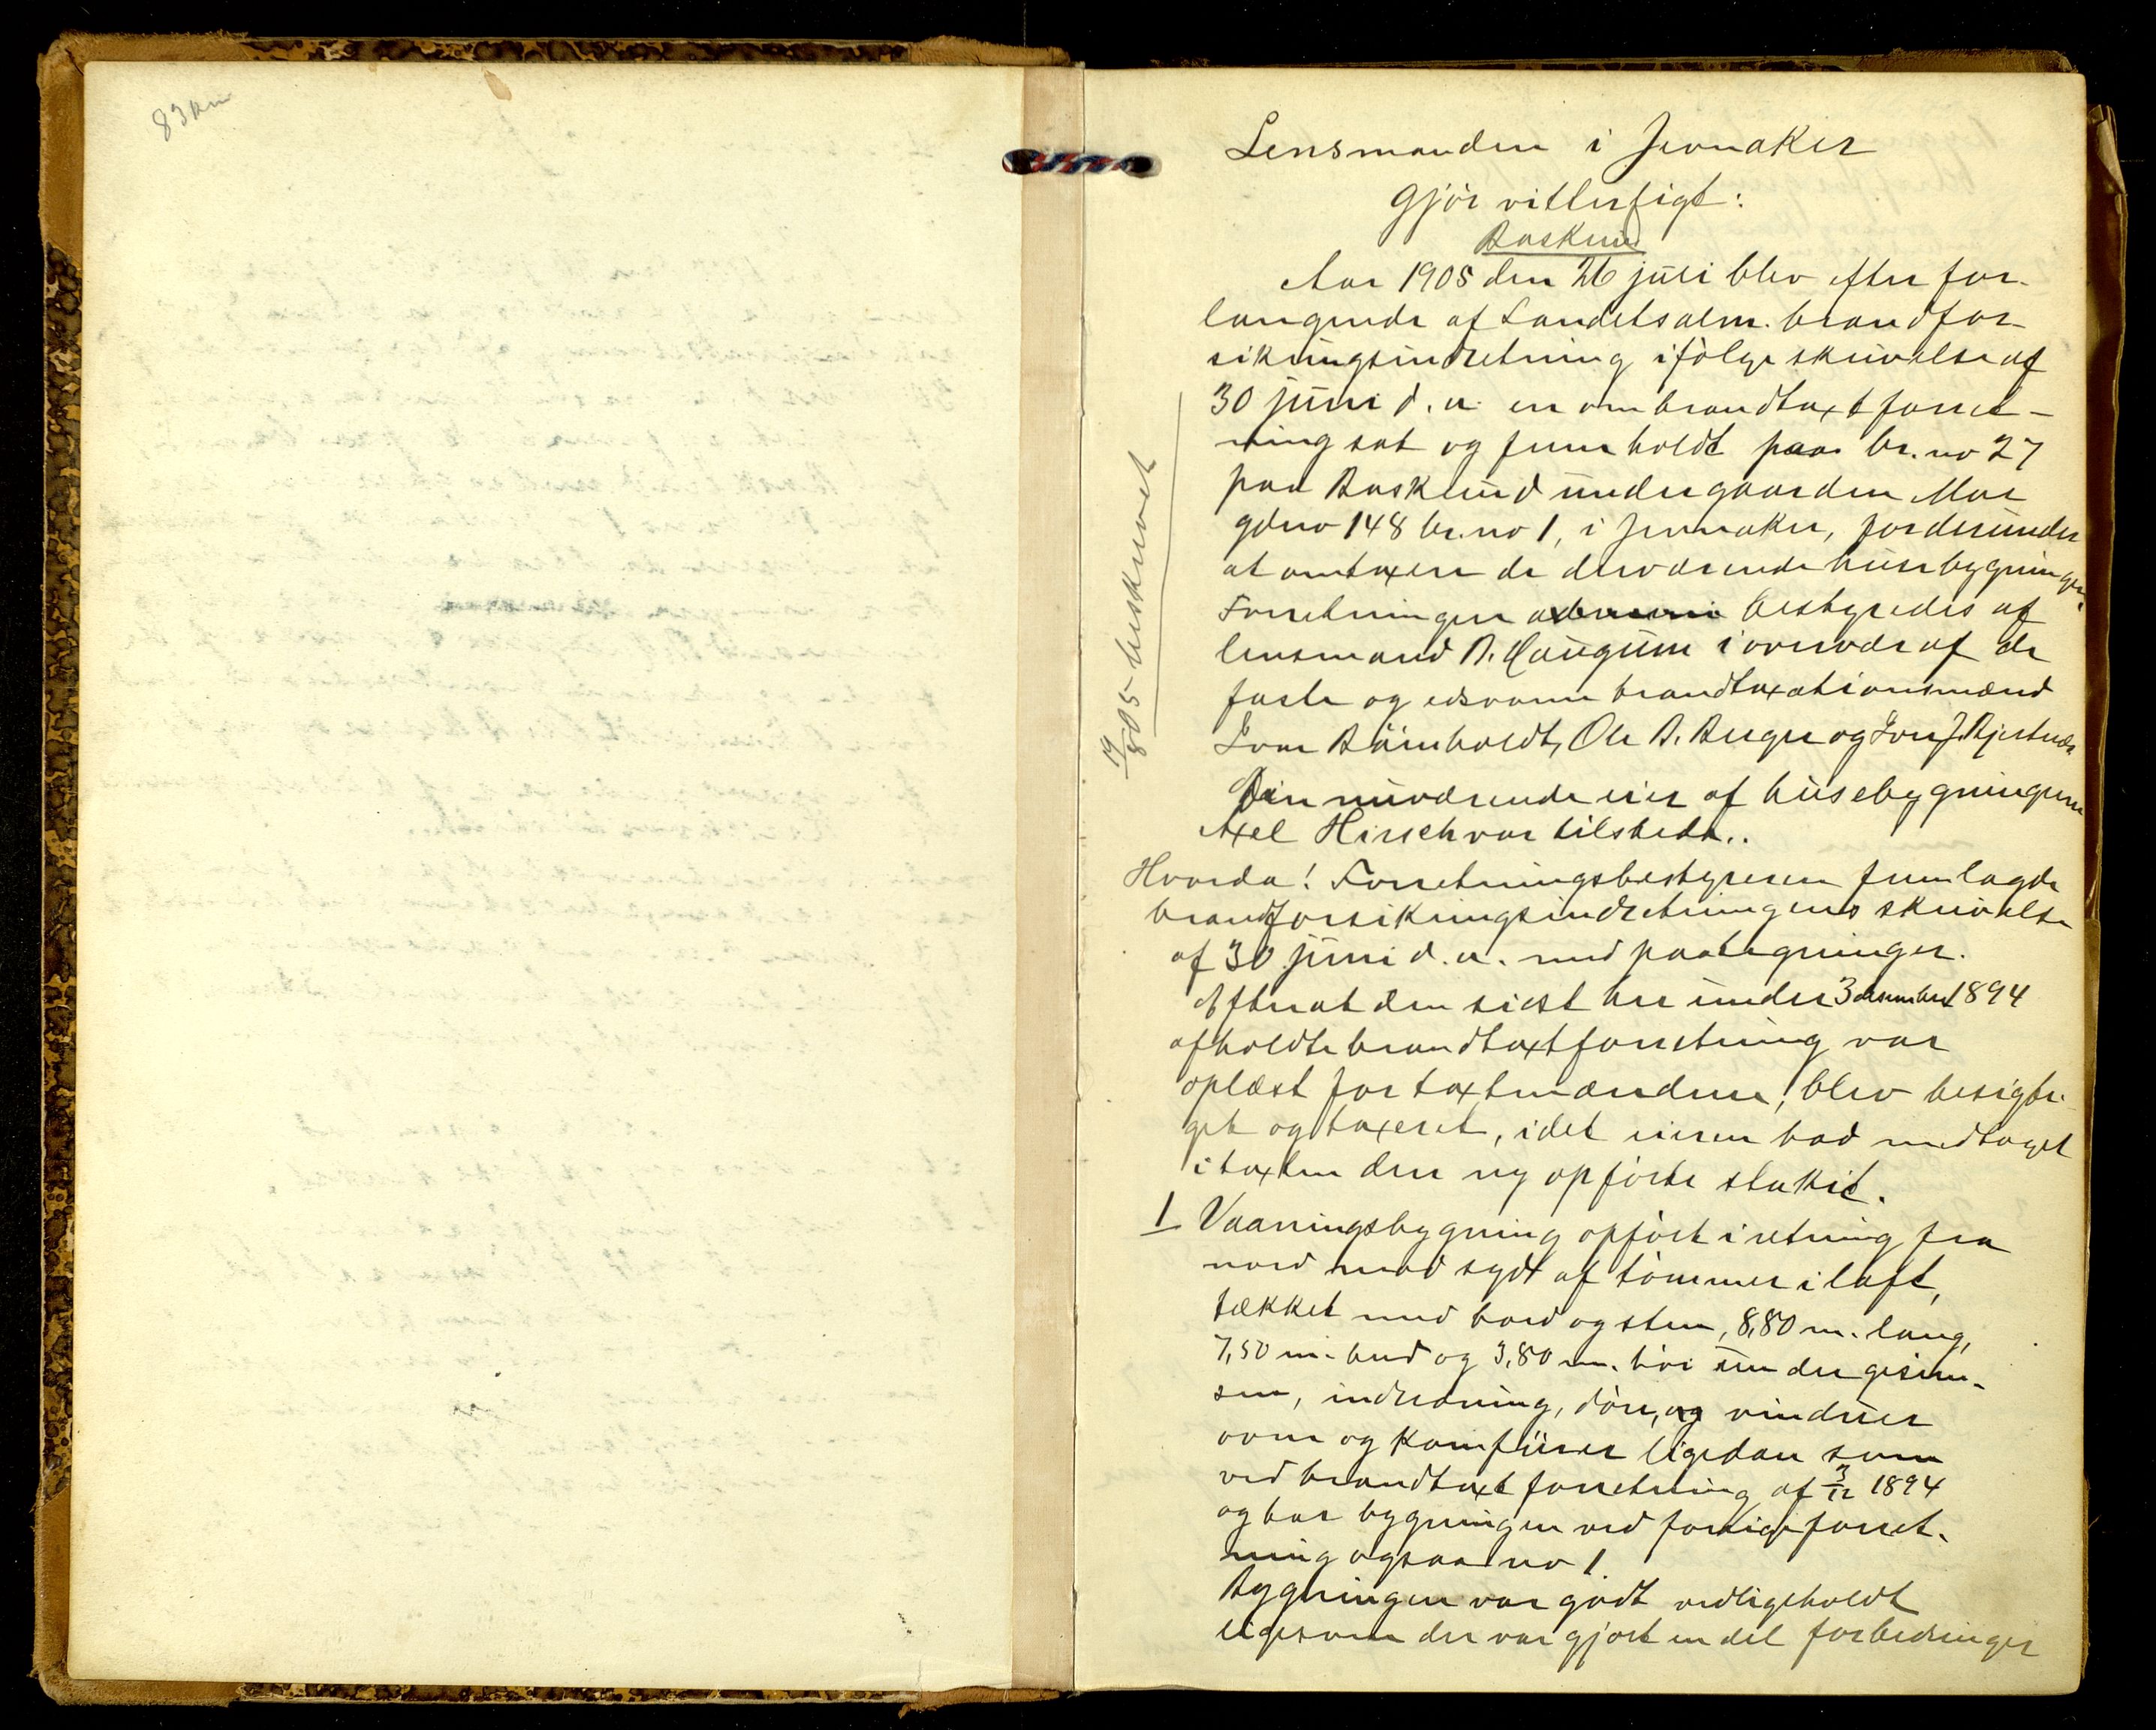 83
Lensmanden i Jevnaker
gjør vitterligt:
Baskerud
Aar 1905 den 26 juli blev efter for-
langende af Landets alm. brandfor-
sikringsindretning ifølge skrivelse af
30 juni d. a. en ombrandtaxtforret-
ning sat og fremholdt paa br. no 27
paa Baskerud under gaarden Moe
gdno 148 br. no 1, i Jevnaker, for derunder
at omtaxere de derværende husebygninger.
Forretningen bestyredes af
lensmand B. Haugum i overvær af de
faste og edsvorne brandtaxationsmænd
Iver Bårnholdt, Ole B. Berger og Iver J. Bjertnæs
Den nuværende eier af husebygningerne
Axel Hirsch var tilstede..
Hvorda! Forretningsbestyreren fremlagde
brandforsikringsindretningens skrivelse
af 30 juni d. a. med paategninger.
Efterat den sidst her under 3 desember 1894
afholdte brandtaxtforretning var
oplæst for taxtmændene, blev besigti-
get og taxeret, idet eieren bad medtaget
i taxten den ny opførte stakit.
1 Vaaningsbygning opført i retning fra
nord mod syd af tømmer i laft,
tækket med bord og sten, 8,80 m. lang,
7,50 m. bred og 3,80 m. høi under gesim-
sen, indredning, døre, og vinduer
ovne og komfurer ligedan som
ved brandtaxtforretning af 3/12 1894
og har bygningen ved forrige forret-
ning ogsaa no 1.
Bygningen var godt vedligeholdt
ligesom der var gjort en del forbedringer
19/8 05 beskrevet